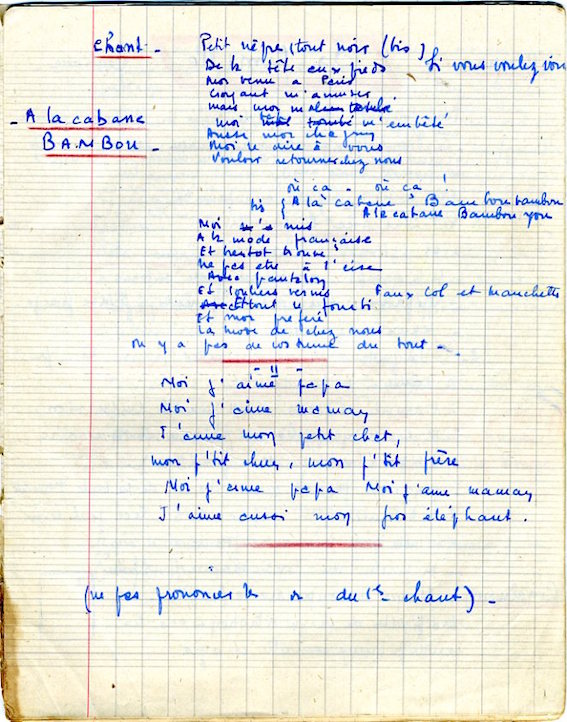 chant - Petit nègre, tout noir (bis)
De la tête aux pieds Si vous voulez
Moi venu à Paris
Croyant m'amuser
mais moi m'
moi m'embêté
Aussi moi chagrin
Moi le dire à vous
Vouloir retourner chez nous
- A la cabane
BAMBOU -
où ça - où ça !
bis { A la cabane Bambou bambou
A la cabane Bambou you
Moi mis
A la mode française
Et bientôt trouvé
ne pas être à l'aise
Avec pantalon
Et souliers vernis Faux col et manchettes
Et tout le fourbi
Et moi préféré
la mode de chez nous
où y a pas de costume du tout -
- " -
Moi j'aime papa
Moi j'aime maman
J'aime mon petit chat,
mon p'tit chien, mon p'tit frère
Moi j'aime papa Moi j'aime maman
J'aime aussi mon gros éléphant.
(ne pas prononcer les r du 1er chant) -